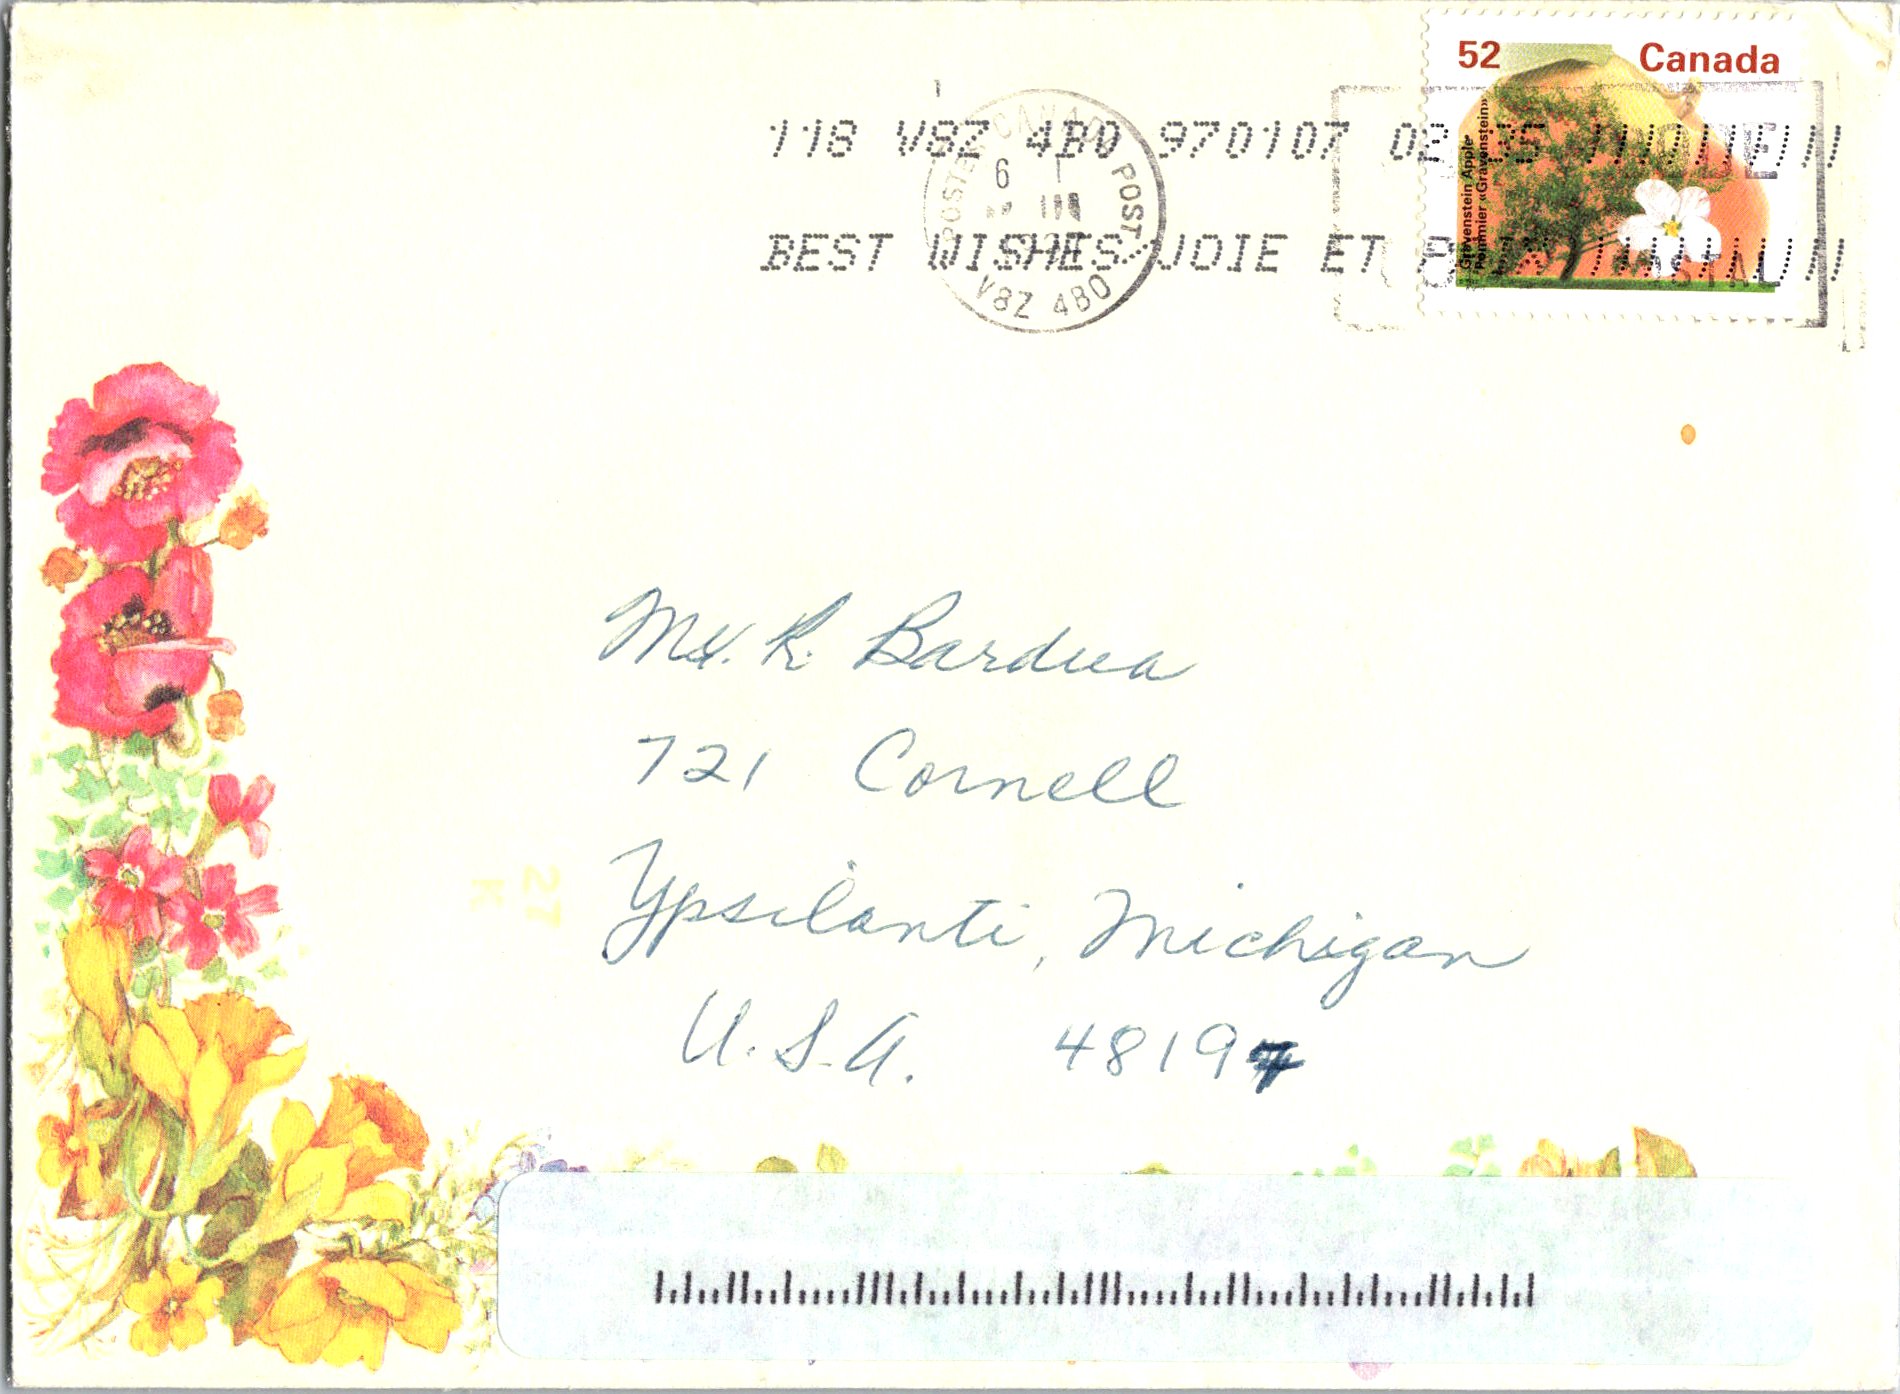 52 Canada
Gravenstein Apple
Pommier «Gravenstein»
118 V8Z 4B0 970107
BEST WISHES JOIE ET
CANADA POST
POSTES
6 I
V8Z 4B0
Mr. R. Bardua
721 Cornell
Ypsilanti, Michigan
U.S.A. 48197
27
K